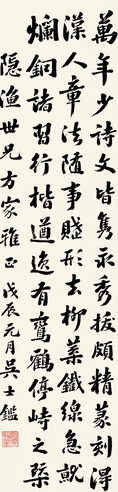 萬年少詩文皆雋永秀拔頗精篆刻得
漢人章法隨事賤形去柳葉鐵線急就
爛銅諸習行楷遒逸有鸞鶴停峙之槩
隱漁世兄方家雅正戊辰元月吳士鑑